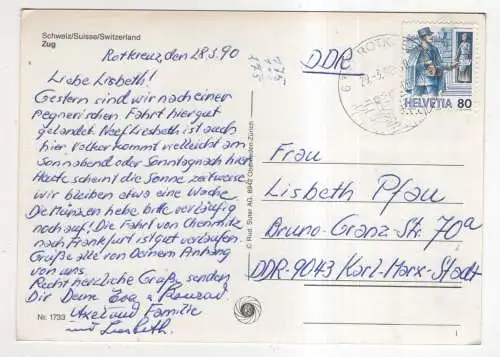 Schweiz/Suisse/Switzerland
Zug
Rotkreuz, den 28.3.90
Liebe Lisbeth!
Gestern sind wir nach einer
regnerischen Fahrt hier gut
gelandet. Liesbeth ist auch
hier. Volker kommt vielleicht am
Sonnabend oder Sonntag nach hier.
Heute scheint die Sonne zeitweise
wir bleiben etwa eine Woche.
Die Münzen hebe bitte vorläufig
noch auf! Die Fahrt von Chemnitz
nach Frankfurt ist gut verlaufen.
Grüße alle von Deinem Anhang
von uns.
Recht herzliche Grüße senden
Dir Deine Eva u. Konrad
Axel und Familie
und Liesbeth.
Nr. 1733
© Rud. Suter AG, 8942 Oberrieden-Zürich
DDR
ROTKREUZ
HELVETIA 80
Frau
Lisbeth Pfau
Bruno-Granz-Str. 70a
DDR-9043 Karl-Marx-Stadt